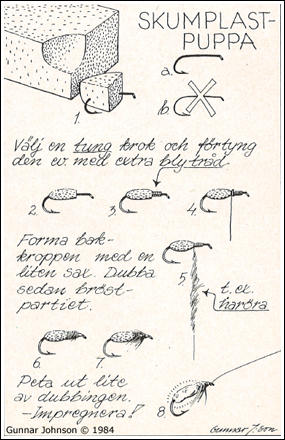 SKUMPLAST-
PUPPA
a.
b.
1.
Välj en tung krok och förtyng
den ev. med extra blytråd.
2.
3.
4.
Forma bak-
kroppen med en
liten sax. Dubba
sedan bröst-
partiet.
5.
t.ex.
haröra
6.
7.
Peta ut lite
av dubbingen.
-Impregnera!
8.
Gunnar J:son
Gunnar Johnson © 1984